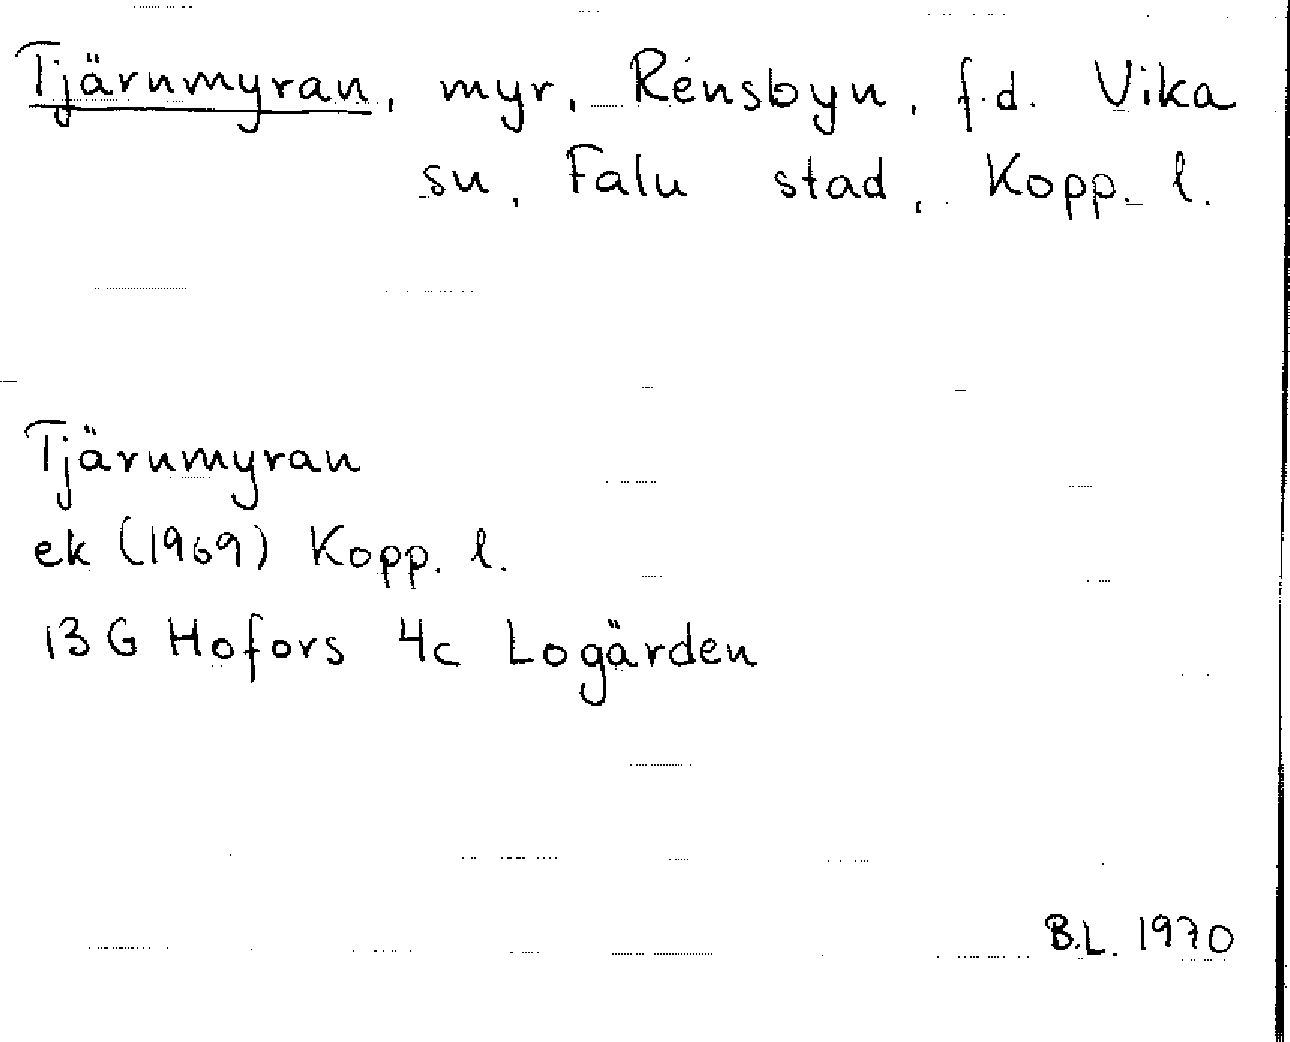 Tjärnmyran, myr, Rénsbyn, f.d. Vika
sn, Falu stad, Kopp. l.
Tjärnmyran
ek (1969) Kopp. l.
13 G Hofors 4c Logärden
B.L. 1970